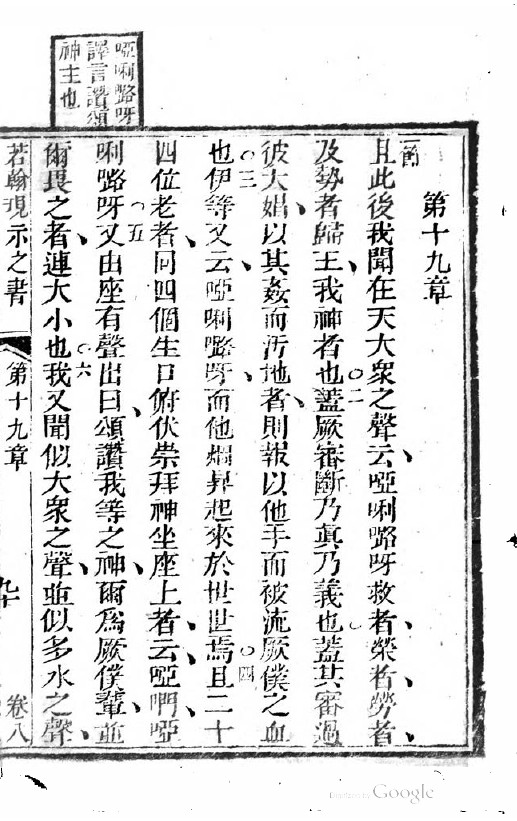 啞唎嚕呀
譯言讚頌
神主也
第十九章
一節
且此後我聞在天大衆之聲云啞唎嚕呀救者榮者勞者
及勢者歸王我神者也○二蓋厥審斷乃眞乃義也蓋其審過
彼大娼以其姦而汚地者則報以他手而被流厥僕之血
也○三伊等又云啞唎嚕呀而他烟昇起來於世世焉○四且二十
四位老者同四個生口俯伏崇拜神坐座上者云啞們啞
唎嚕呀○五又由座有聲出曰頌讚我等之神爾爲厥僕輩並
爾畏之者連大小也○六我又聞似大衆之聲並似多水之聲
若翰現示之書 第十九章 卷八
Google